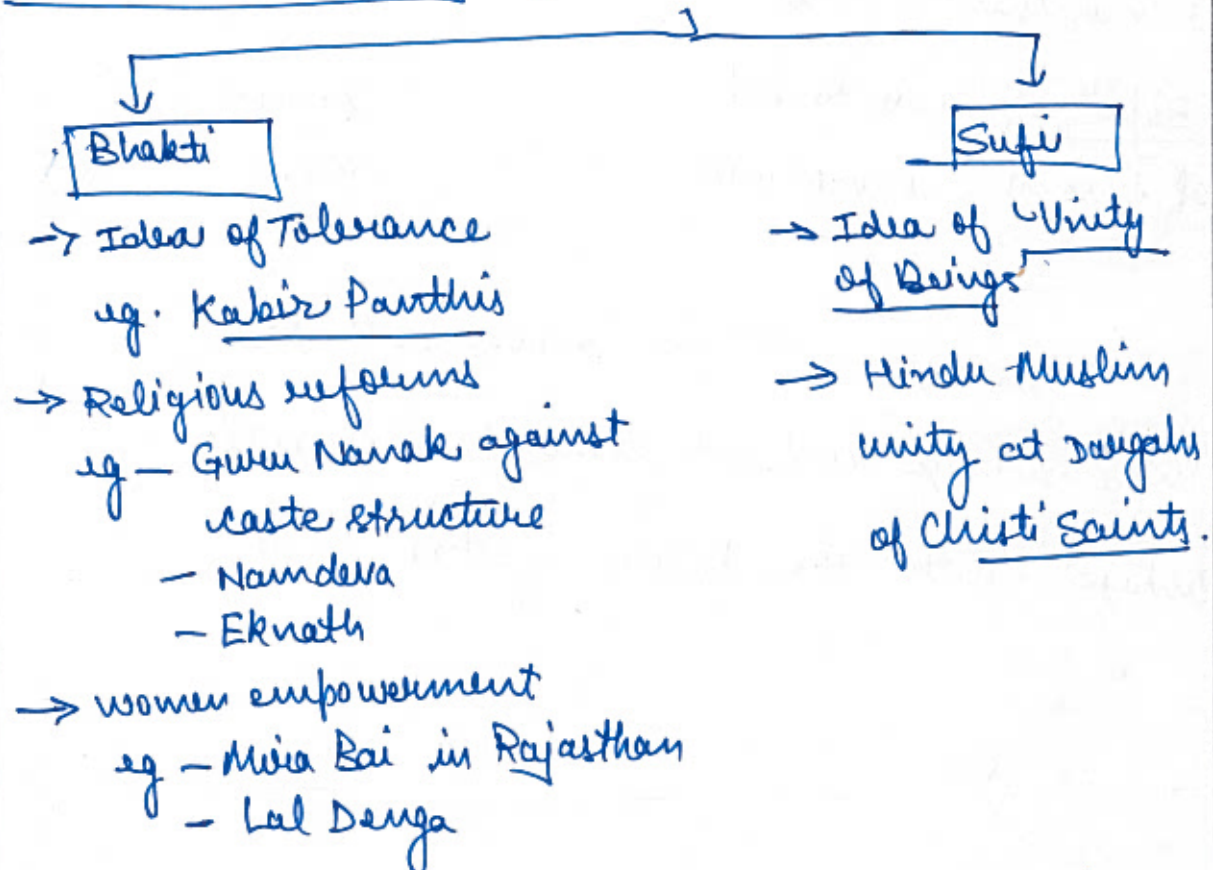 Bhakti
→ Idea of Tolerance
eg. Kabir Panthis
→ Religious reforms
eg – Guru Nanak against
caste structure
– Namdeva
– Eknath
→ women empowerment
eg – Mira Bai in Rajasthan
– Lal Denga
Sufi
→ Idea of 'Unity
of Beings'
→ Hindu-Muslim
unity at Dargahs
of Chisti Saints.